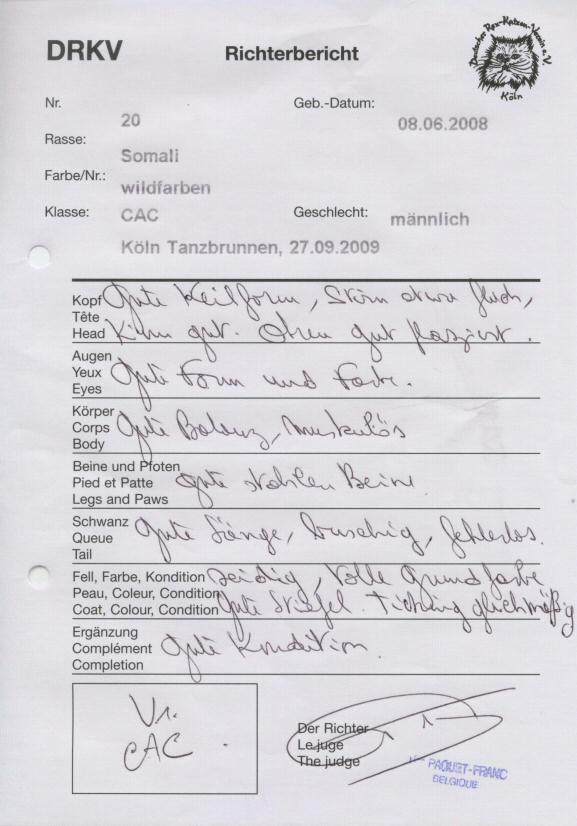 DRKV
Richterbericht
Deutscher Rex-Katzen-Verein e.V.
Köln
Nr.
20
Geb.-Datum:
08.06.2008
Rasse:
Somali
Farbe/Nr.:
wildfarben
Klasse:
CAC
Geschlecht:
männlich
Köln Tanzbrunnen, 27.09.2009
Kopf Gute Keilform, Stirn etwas flach,
Tête
Head Kinn gut. Ohren gut plaziert.
Augen
Yeux Gute Form und Farbe.
Eyes
Körper
Corps Gute Balanz, muskulös
Body
Beine und Pfoten
Pied et Patte gute stabilen Beine
Legs and Paws
Schwanz Gute Länge, buschig, fehlerlos.
Queue
Tail
Fell, Farbe, Kondition seidig, volle Grundfarbe
Peau, Coleur, Condition
Coat, Colour, Condition gute Stiefel. Ticking gleichmäßig
Ergänzung
Complément Gute Kondition.
Completion
V1.
CAC
Der Richter
Le juge
The judge
PAQUET-FRANC
BELGIQUE